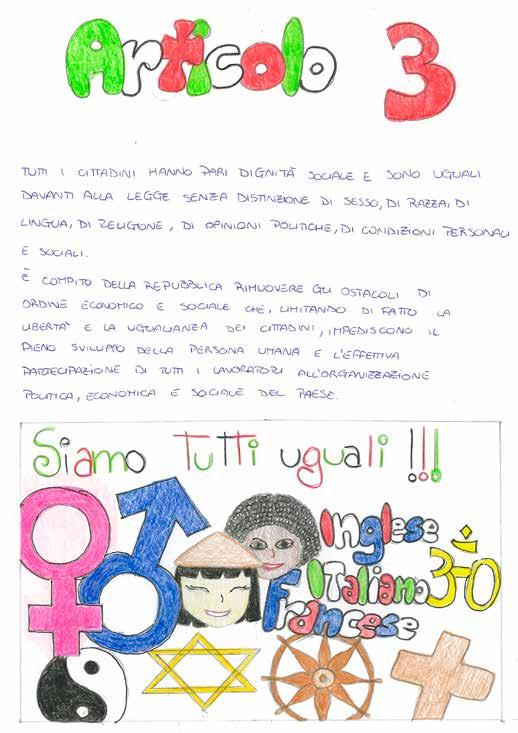 Articolo 3
TUTTI I CITTADINI HANNO PARI DIGNITÀ SOCIALE E SONO UGUALI
DAVANTI ALLA LEGGE SENZA DISTINZIONE DI SESSO, DI RAZZA, DI
LINGUA, DI RELIGIONE, DI OPINIONI POLITICHE, DI CONDIZIONI PERSONALI
E SOCIALI.
È COMPITO DELLA REPUBBLICA RIMUOVERE GLI OSTACOLI DI
ORDINE ECONOMICO E SOCIALE CHE, LIMITANDO DI FATTO LA
LIBERTA' E LA UGUALIANZA DEI CITTADINI, IMPEDISCONO IL
PIENO SVILUPPO DELLA PERSONA UMANA E L'EFFETTIVA
PARTECIPAZIONE DI TUTTI I LAVORATORI ALL'ORGANIZZAZIONE
POLITICA, ECONOMICA E SOCIALE DEL PAESE.
Siamo Tutti uguali !!!
Inglese
Italiano
Francese